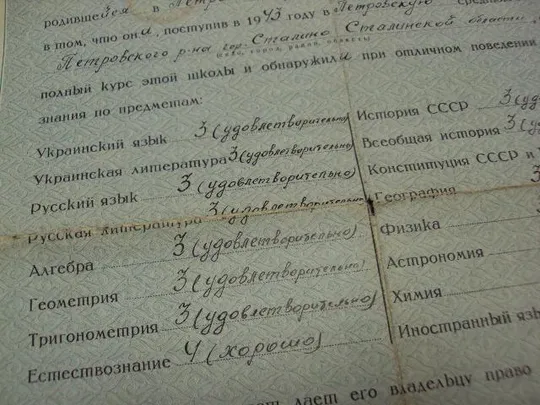 родившейся в
в том, что он а, поступив в 1943 году в Петровскую
Петровского р-на гор. Сталино Сталинской области
полный курс этой школы и обнаружил и при отличном поведении
знания по предметам:
Украинский язык 3 (удовлетворительно)
Украинская литература 3 (удовлетворительно)
Русский язык 3 (удовлетворительно)
Русская литература 3 (удовлетворительно)
Алгебра 3 (удовлетворительно)
Геометрия 3 (удовлетворительно)
Тригонометрия 3 (удовлетворительно)
Естествознание 4 (хорошо)
История СССР 3
Всеобщая история 3
Конституция СССР и
География 3
Физика
Астрономия
Химия
Иностранный язы
дает его владельцу право